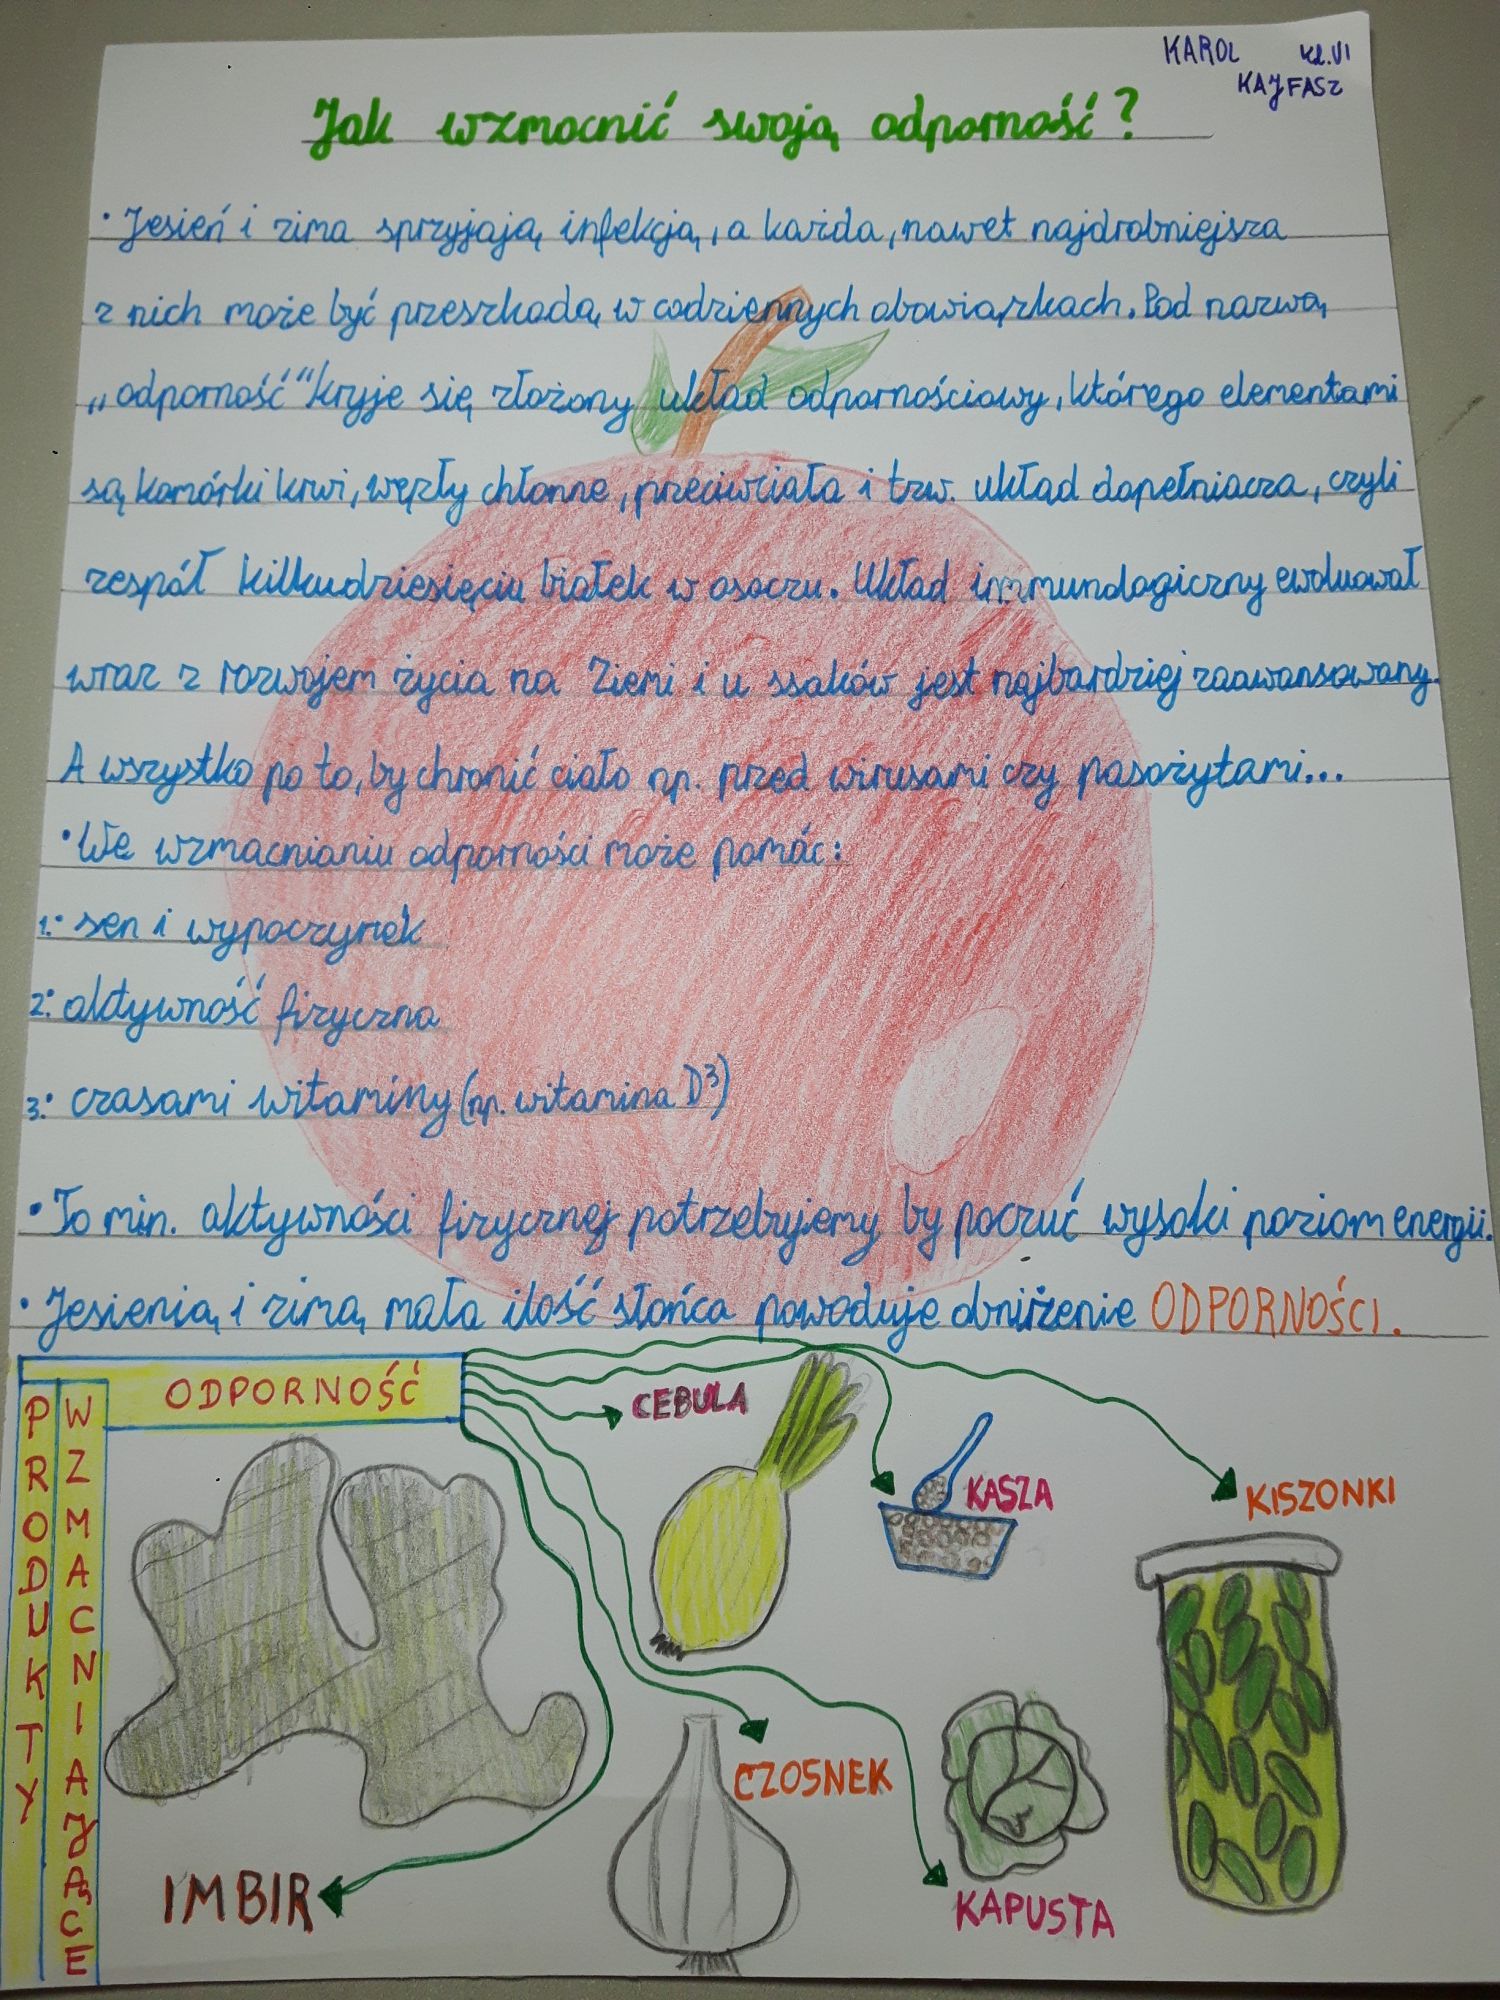 KAROL kl.VI
KAJFASZ
Jak wzmocnić swoją odporność?
• Jesień i zima sprzyjają infekcją, a każda, nawet najdrobniejsza
z nich może być przeszkodą w codziennych obowiązkach. Pod nazwą
„odporność“ kryje się złożony układ odpornościowy, którego elementami
są komórki krwi, węzły chłonne, przeciwciała i tzw. układ dopełniacza, czyli
zespół kilkudziesięciu białek w osoczu. Układ immunologiczny ewoluował
wraz z rozwojem życia na Ziemi i u ssaków jest najbardziej zaawansowany.
A wszystko po to, by chronić ciało np. przed wirusami czy pasożytami...
• We wzmacnianiu odporności może pomóc:
1: sen i wypoczynek
2: aktywność fizyczna
3: czasami witaminy (np. witamina D³)
• To min. aktywności fizycznej potrzebujemy by poczuć wysoki poziom energii.
• Jesienią i zimą mała ilość słońca powoduje obniżenie ODPORNOŚCI.
PRODUKTY
WZMACNIAJĄCE
ODPORNOŚĆ
CEBULA
KASZA
KISZONKI
CZOSNEK
IMBIR
KAPUSTA